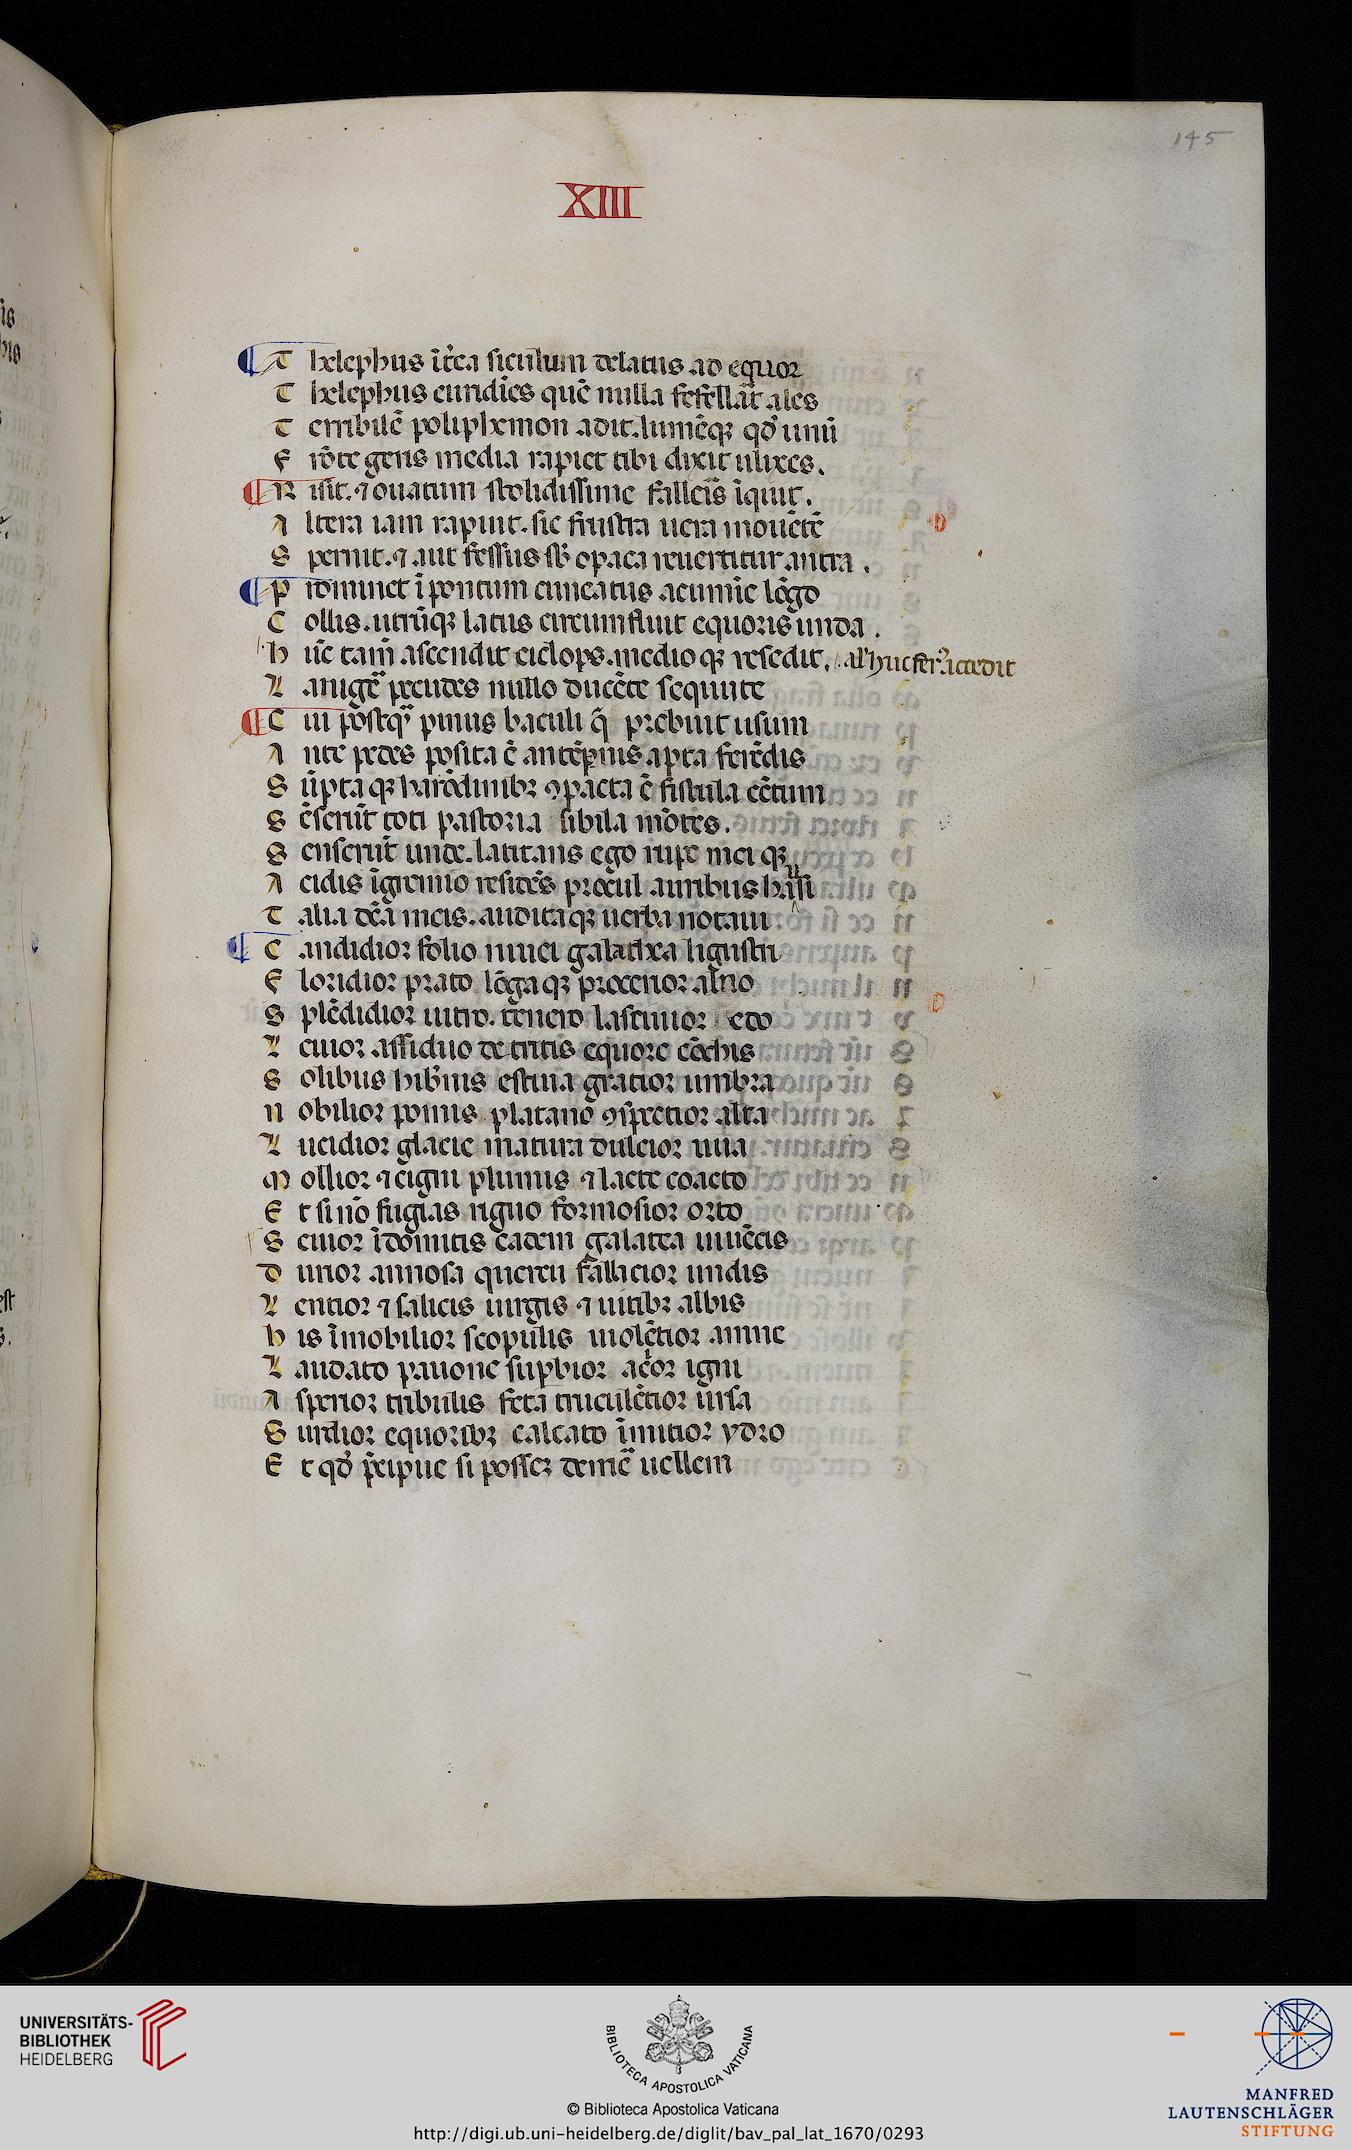 145
XIII
T helephus īt̄ea siculum delatus ad equor
T helephus euridīes quē nulla fefellāt ales
T erribilē poliphemon adit. lumēqꝫ qd̓ unū
F rōte geris media rapiet tibi dixit ulixes.
R isit. ⁊ o uatum stolidissime falleīs īquit.
A ltera iam rapuit. sic frustra uera mouētē
S pernit. ⁊ aut fessus sb̓ opaca reuertitur antra.
P rominet ī pontum cuneatus acumīe lōgo
C ollis. utrūqꝫ latus circumfluit equoris unda.
h ūc tam̄ ascendit ciclops. medioqꝫ resedit. al' huc fer' accedit
L anigē pecudes nullo ducēte sequute
C ui postqͣ pinus baculi q̄ prebuit usum
A nte pedes posita ē antēpnis apta ferēdis
S ūptaqꝫ harūdinibꝫ ꝯpacta ē fistula cētum
S ēserūt toti pastoria sibila mōtes.
S enserūt unde. latitans ego rupe meiqꝫ
A cidis īgremio residēs procul auribus hausi
T alia dc̄a meis. auditaqꝫ uerba notaui
C andidior folio niuei galathea ligustri
F loridior prato lōgaqꝫ procerior alno
S plēdidior uitro. tenero lasciuior edo
L euior assiduo detritis equore cōchis
S olibus hib̓nis estiua gratior umbra
N obilior pomis platano ꝯspectior alta
L ucidior glacie matura dulcior uua
M ollior ⁊ cigni plumis ⁊ lacte coacto
E t si nō fugias riguo formosior orto
S euior īdomitis eadem galatea iuuēcis
D urior annosa quercu fallacior undis
L entior ⁊ salicis uirgis ⁊ uitibꝫ albis
h is īmobilior scopulis uiolētior amne
L audato pauone supbior acrior igni
A sperior tribulis feta truculētior ursa
S urdior equoribꝫ calcato īmitior ydro
E t qd̓ p̄cipue si possēꝫ demē uellem
UNIVERSITÄTS-
BIBLIOTHEK
HEIDELBERG
BIBLIOTECA APOSTOLICA VATICANA
© Biblioteca Apostolica Vaticana
http://digi.ub.uni-heidelberg.de/diglit/bav_pal_lat_1670/0293
MANFRED
LAUTENSCHLÄGER
STIFTUNG